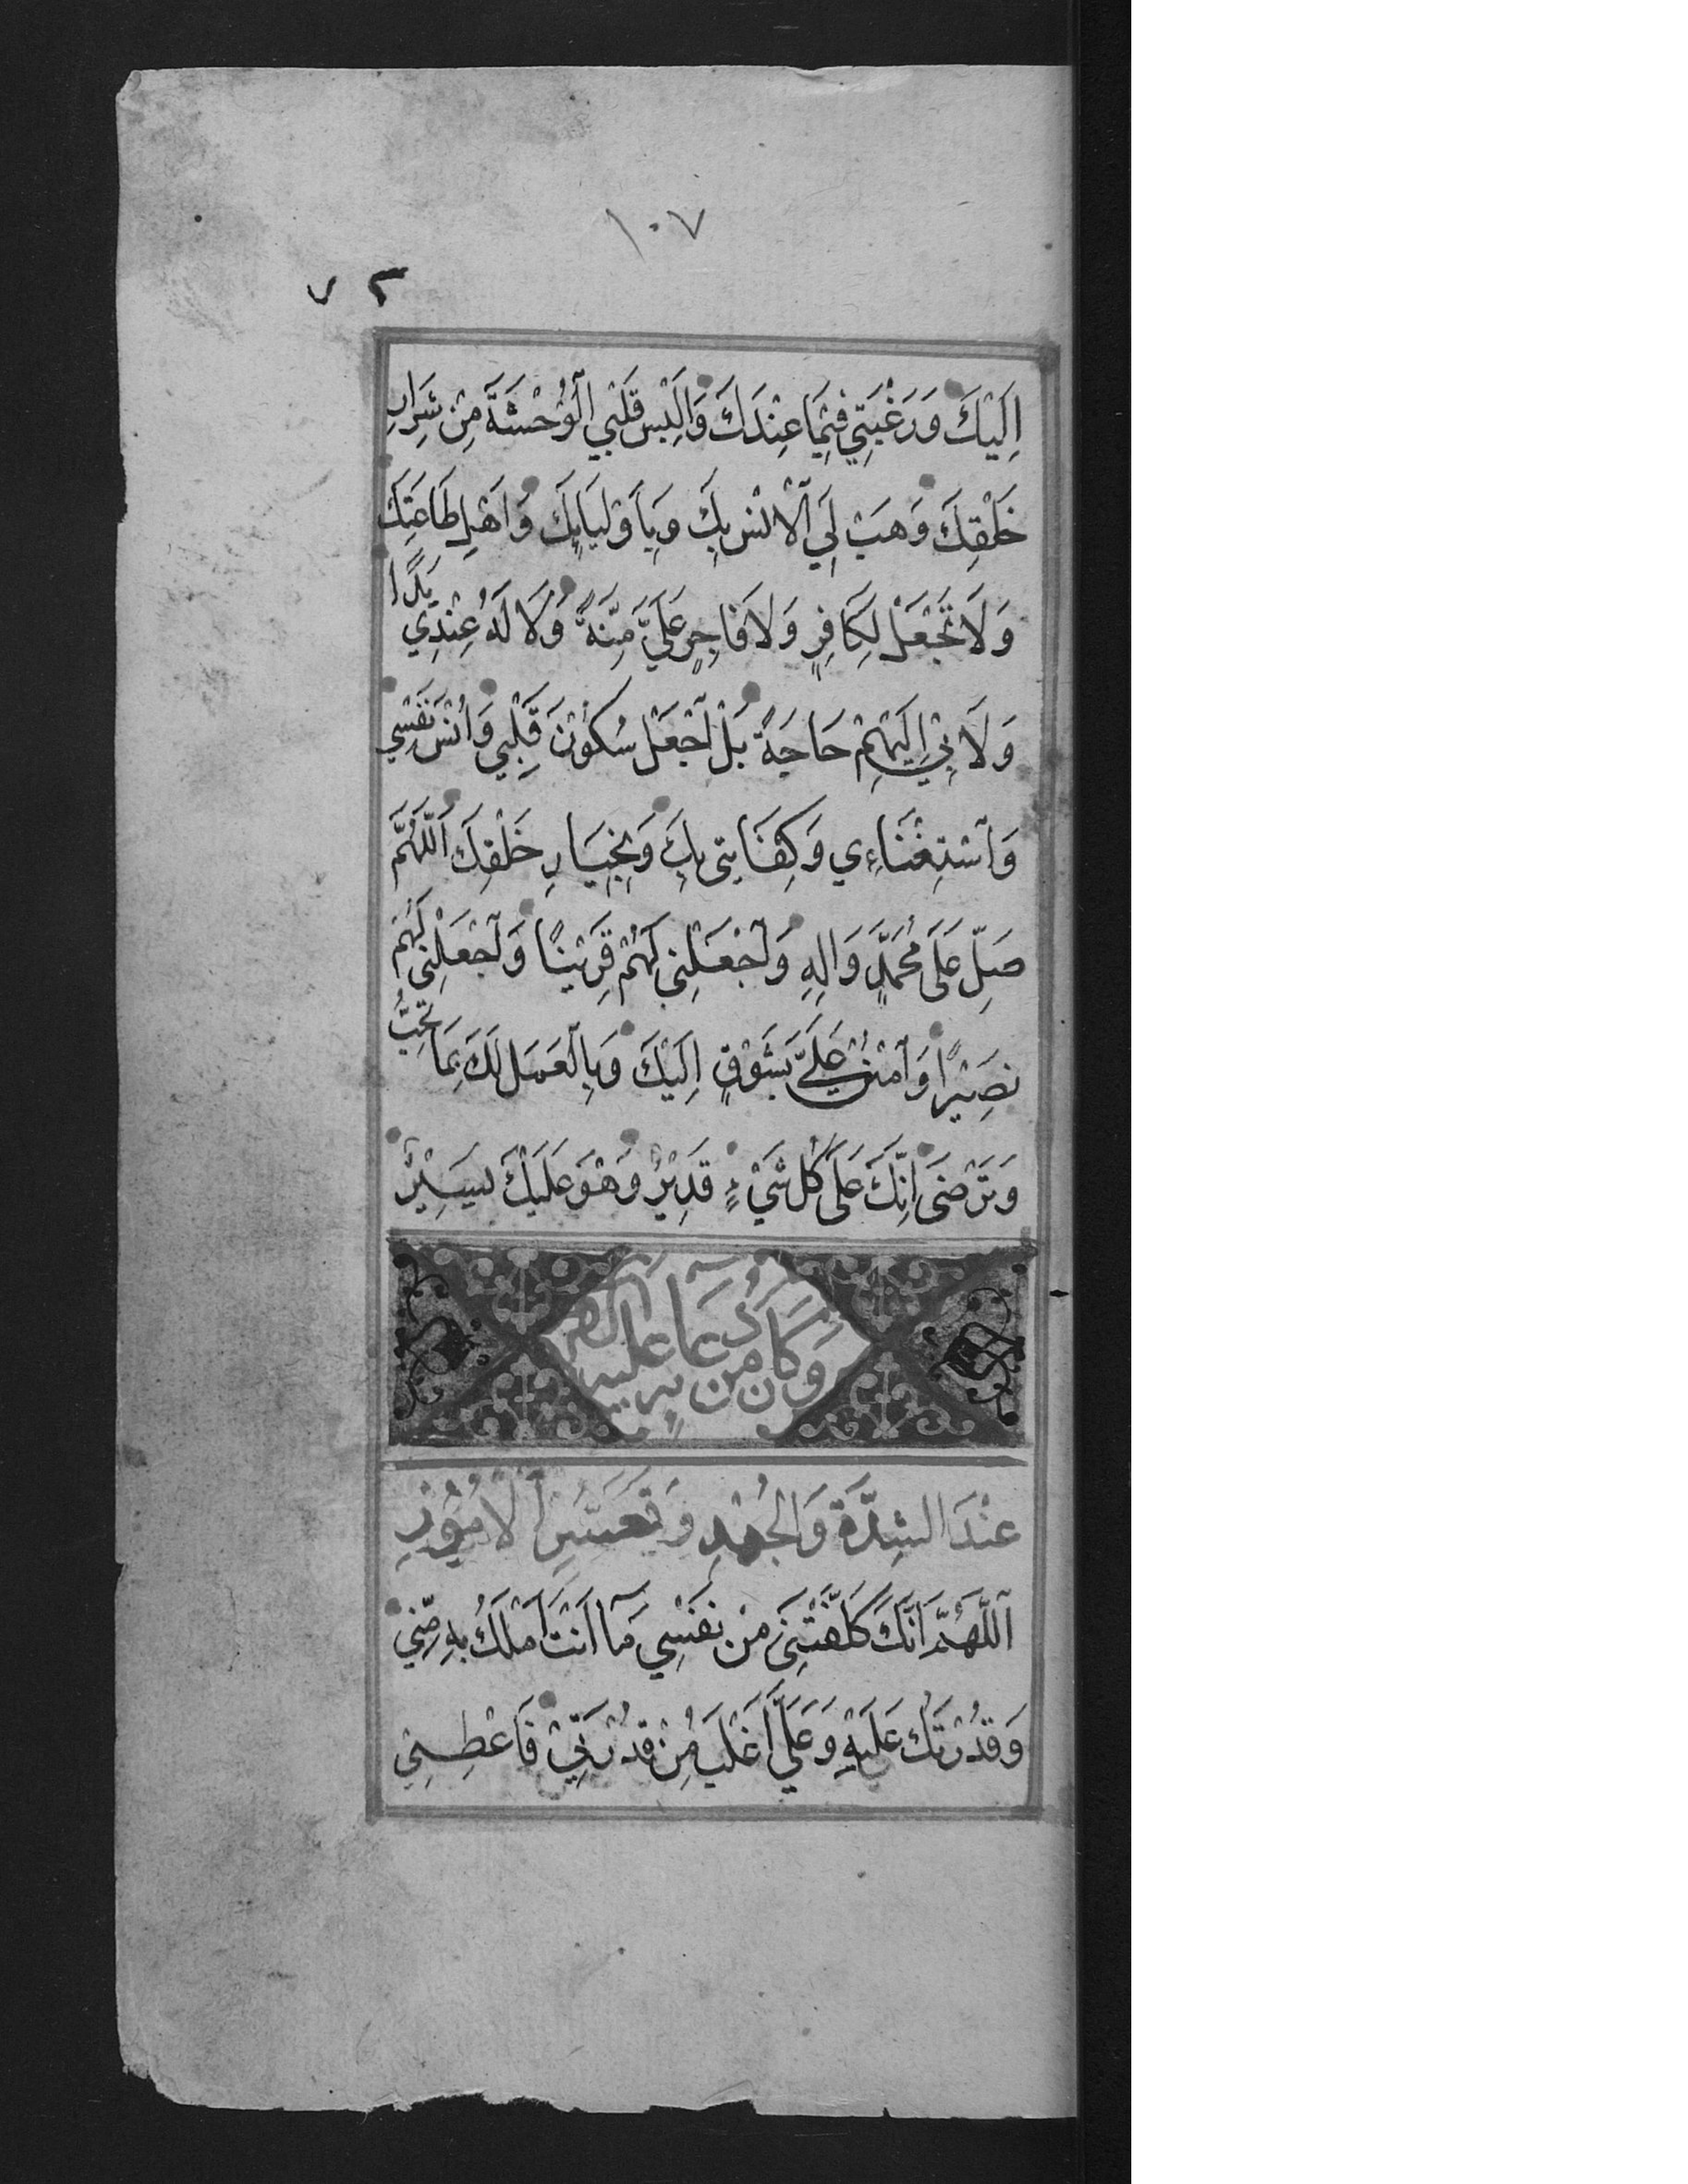 ١٠٧
اِلَيْكَ وَرَغْبَتِي فِيْمَا عِنْدَكَ وَاَلْبِسْ قَلْبِي الْوُحْشَةَ مِنْ شِرَارِ
خَلْقِكَ وَهَبْ لِيَ الْاُنْسَ بِكَ وَبِاَوْلِيَايِكَ وَاَهْلِ طَاعَتِكَ
وَلَا تَجْعَلْ لِكَافِرٍ وَلَا فَاجِرٍ عَلَيَّ مِنَّةً وَلَا لَهُ عِنْدِي يَدًا
وَلَا بِيْ اِلَيْهِمْ حَاجَةً بَلْ اجْعَلْ سُكُوْنَ قَلْبِي وَاُنْسَ نَفْسِي
وَاسْتِغْنَاءِي وَكِفَايَتِى بِكَ وَبِخِيَارِ خَلْقِكَ اَللّٰهُمَّ
صَلِّ عَلَى مُحَمَّدٍ وَالِهِ وَاجْعَلْنِى لَهُمْ قَرِيْنًا وَاجْعَلْنِى لَهُمْ
نَصِيْرًا وَامْنُنْ عَلَيَّ بِشَوْقٍ اِلَيْكَ وَبِالْعَمَلِ لَكَ بِمَا تُحِبُّ
وَتَرْضَى اِنَّكَ عَلَى كُلِّ شَيْءٍ قَدِيْرٌ وَهُوَ عَلَيْكَ يَسِيْرٌ
وَكَانَ مِنْ دُعَايِهِ عَلَيْهِ
عِنْدَ الشِّدَّةِ وَالْجُهْدِ وَتَعَسُّرِ الْاُمُوْرِ
اَللّٰهُمَّ اِنَّكَ كَلَّفْتَنِى مِنْ نَفْسِي مَا اَنْتَ اَمْلَكُ بِهِ مِنِّي
وَقُدْرَتُكَ عَلَيْهِ وَعَلَيَّ اَغْلَبُ مِنْ قُدْرَتِيْ فَاَعْطِنِي